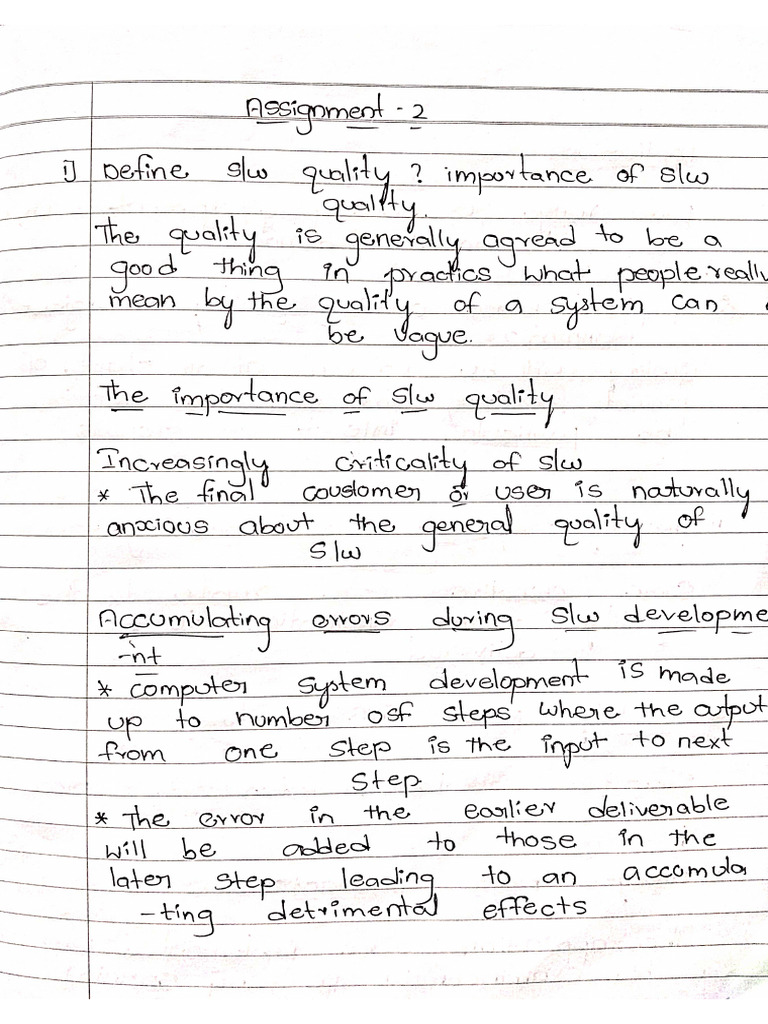 Assignment - 2
1) Define S/w quality ? importance of S/w
quality.
The quality is generally agread to be a
good thing in practics what people really
mean by the quality of a system can
be vague.
The importance of S/w quality
Increasingly criticality of S/w
* The final coustomer or user is naturally
anxcious about the general quality of
S/w
Accumulating errors during S/w developme
-nt
* computer system development is made
up to number osf steps where the output
from one step is the input to next
step.
* The error in the earlier deliverable
will be added to those in the
later step leading to an accomula
-ting detrimental effects